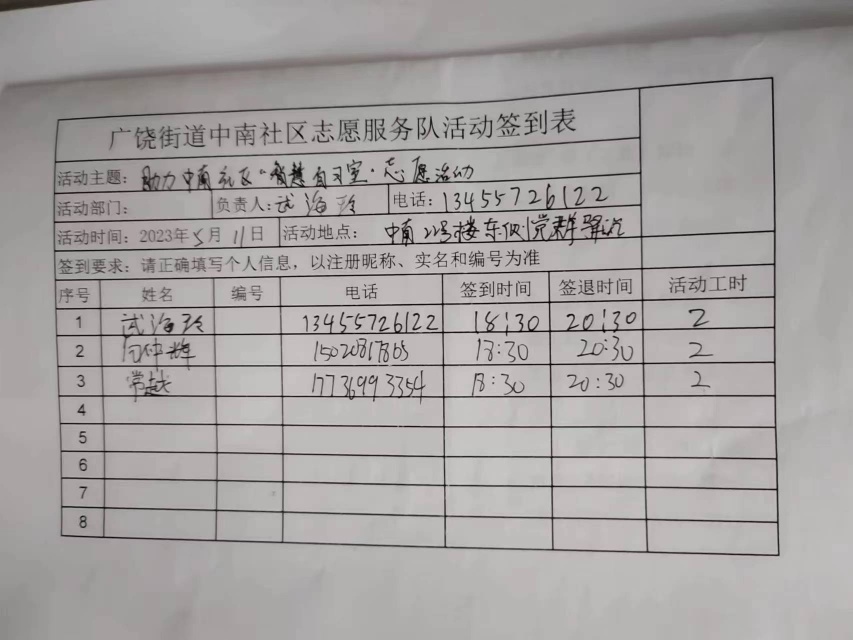 广饶街道中南社区志愿服务队活动签到表
活动主题：助力中南社区"智慧自习室"志愿活动
活动部门： 负责人：武海玲 电话：13455726122
活动时间：2023年5月11日 活动地点：中南22号楼东侧党群驿站
签到要求：请正确填写个人信息，以注册昵称、实名和编号为准
序号 姓名 编号 电话 签到时间 签退时间 活动工时
1 武海玲 13455726122 18:30 20:30 2
2 仲辉 18:30 20:30 2
3 常越 17736993354 18:30 20:30 2
4
5
6
7
8